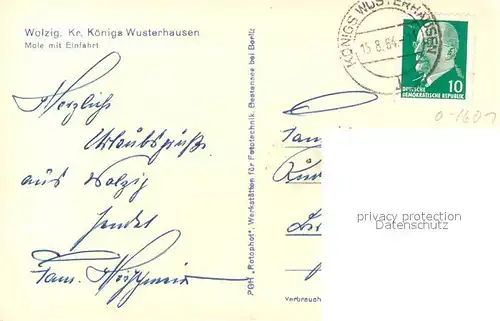 Wolzig, Kr. Königs Wusterhausen
Mole mit Einfahrt
Herzliche
Urlaubsgrüße
aus Wolzig
sendet
Fam.
PGH „Rotophot", Werkstätten für Fototechnik, Bestensee bei Berlin
KÖNIGS WUSTERHAUSEN
15.8.64
10
DEUTSCHE
DEMOKRATISCHE REPUBLIK
0-1601
Fam
privacy protection
Datenschutz
Verbrauch